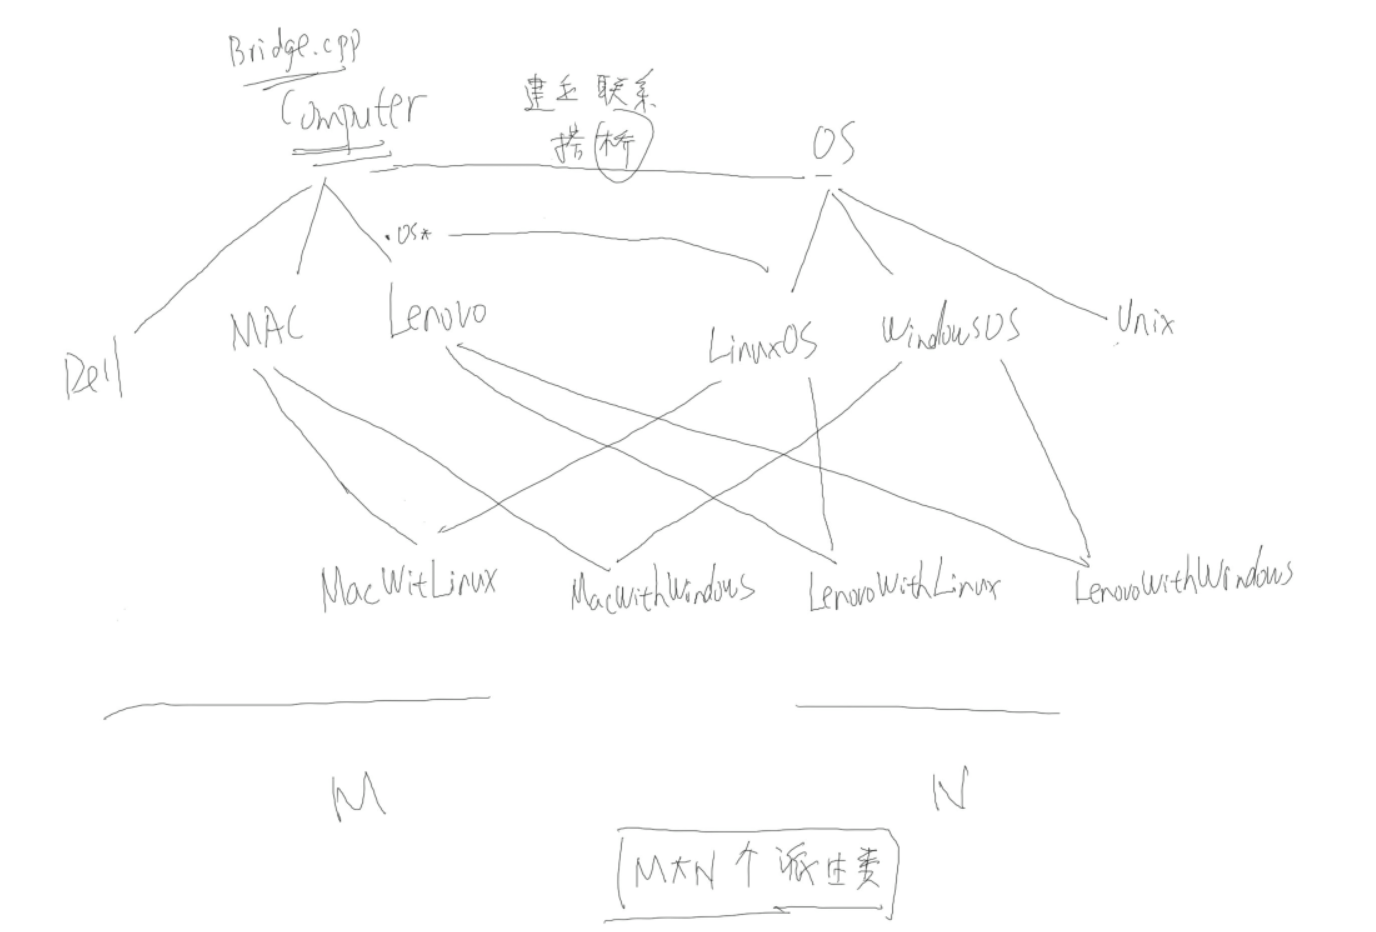 Bridge.cpp
Computer
建立 联系
搭桥
OS
·OS*
Dell
MAC
Lenovo
LinuxOS
WindowsOS
Unix
MacWitLinux
MacWithWindows
LenovoWithLinux
LenovoWithWindows
M
N
M*N 个 派生类